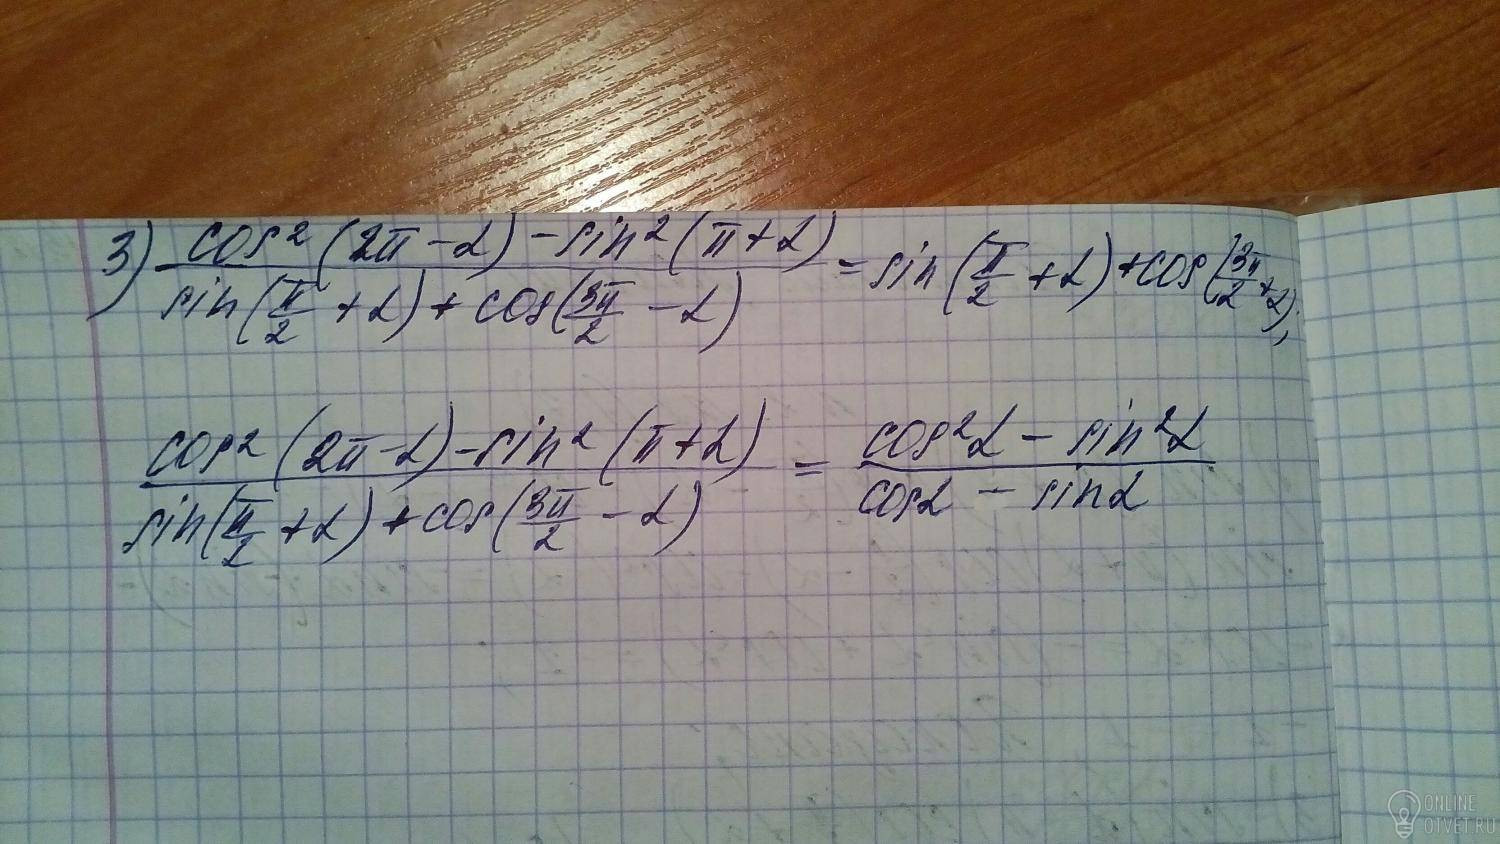 3) cos² (2π - α) - sin² (π + α) / sin(π/2 + α) + cos(3π/2 - α) = sin(π/2 + α) + cos(3π/2 + α);
cos² (2π - α) - sin² (π + α) / sin(π/2 + α) + cos(3π/2 - α) = cos²α - sin²α / cosα - sinα
ONLINE
OTVET.RU